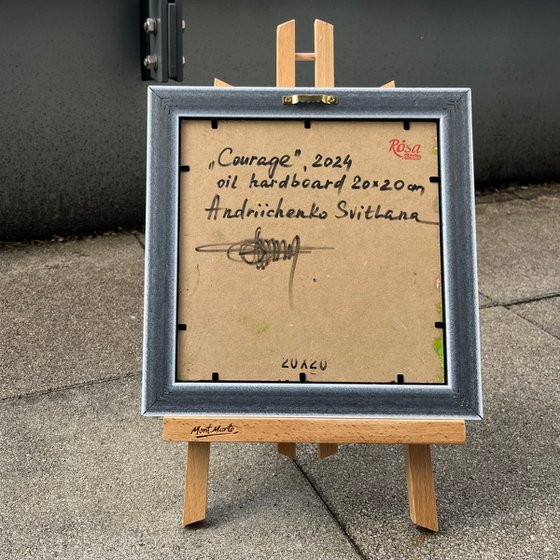 „Courage", 2024
Rosa
oil hardboard 20x20 cm
Andriichenko Svitlana
20X20
Mont Marte